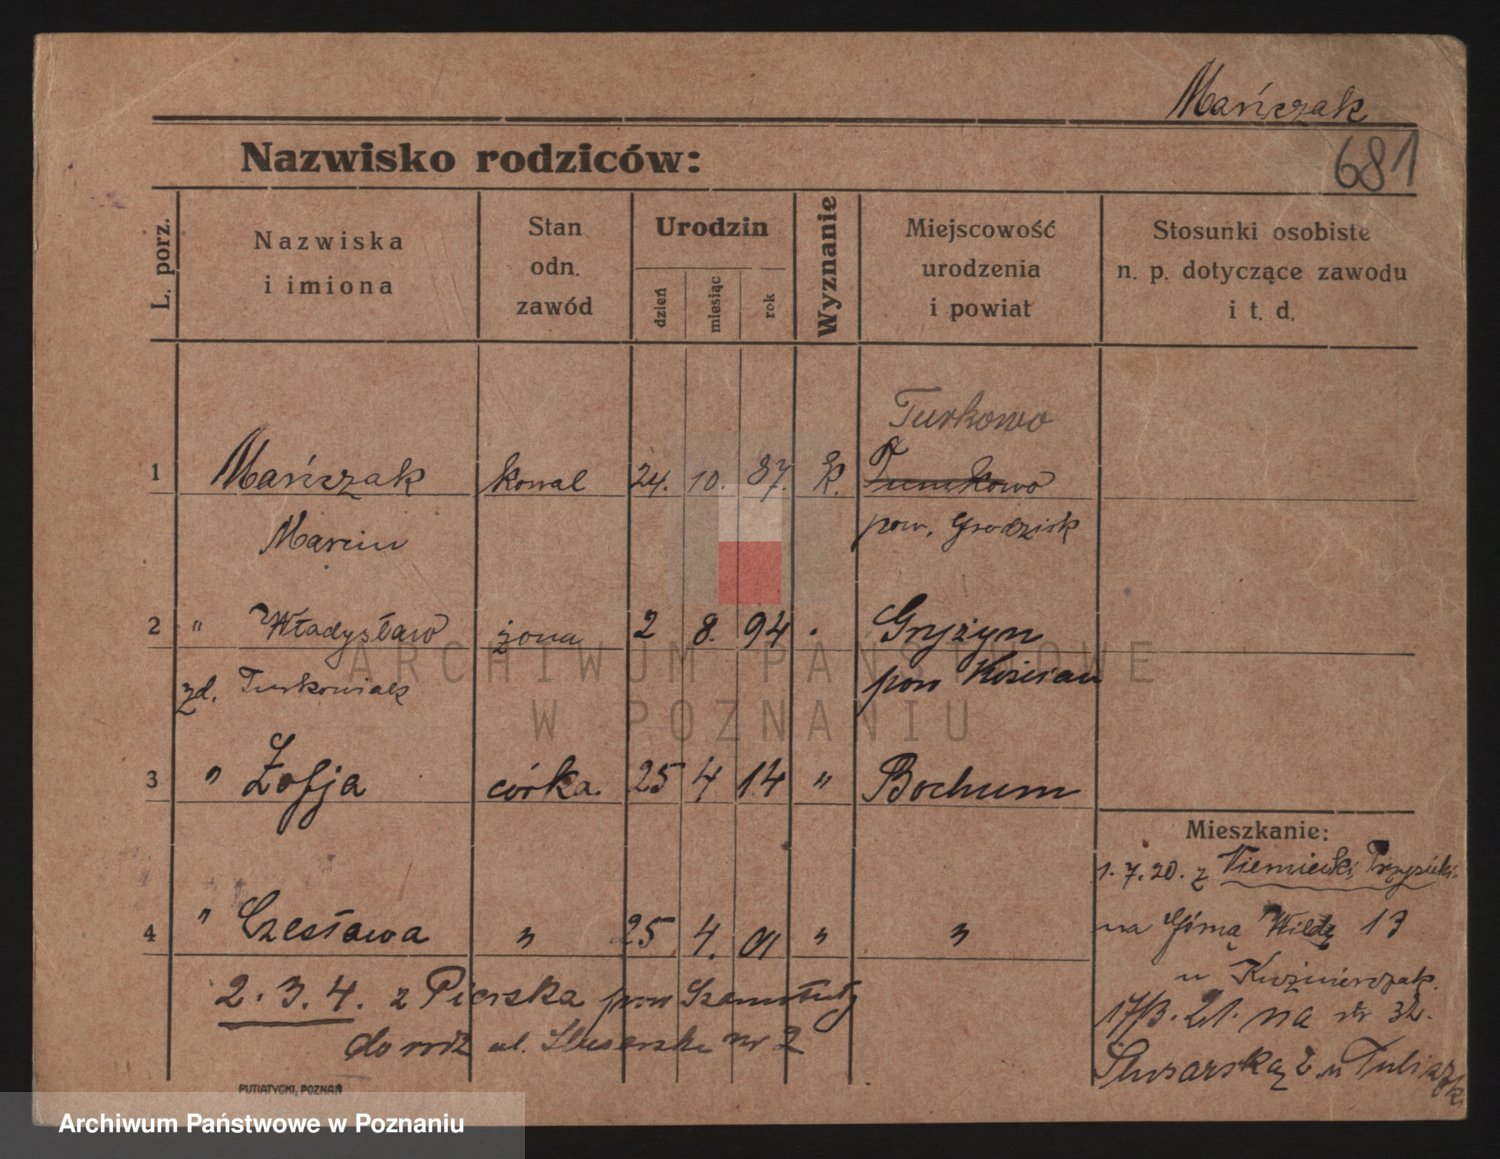 Mańczak
681
Nazwisko rodziców:
L. porz.
Nazwiska
i imiona
Stan
odn.
zawód
Urodzin
dzień
miesiąc
rok
Wyznanie
Miejscowość
urodzenia
i powiat
Stosunki osobiste
n. p. dotyczące zawodu
i t. d.
Turkowo
1 Mańczak kowal 24. 10. 87. K.
Marcin pow. Grodzisk
2 " Władysława żona 2 8. 94 Gryżyn
zd. Turkowiak pow Kościan
3 " Zofja córka 25 4 14 " Bochum
4 " Czesława " 25 4. " "
2. 3. 4. z Pierska pow Szamotuły
do rodz ul. Ślusarska nr 2
Mieszkanie:
1. 7. 20. z Niemiecki
na Górną Wildę 17
u Kuźmierczak.
17/3. 21. na
Ślusarska 2. u
PUTIATYCKI, POZNAŃ
ARCHIWUM PAŃSTWOWE
W POZNANIU
Archiwum Państwowe w Poznaniu